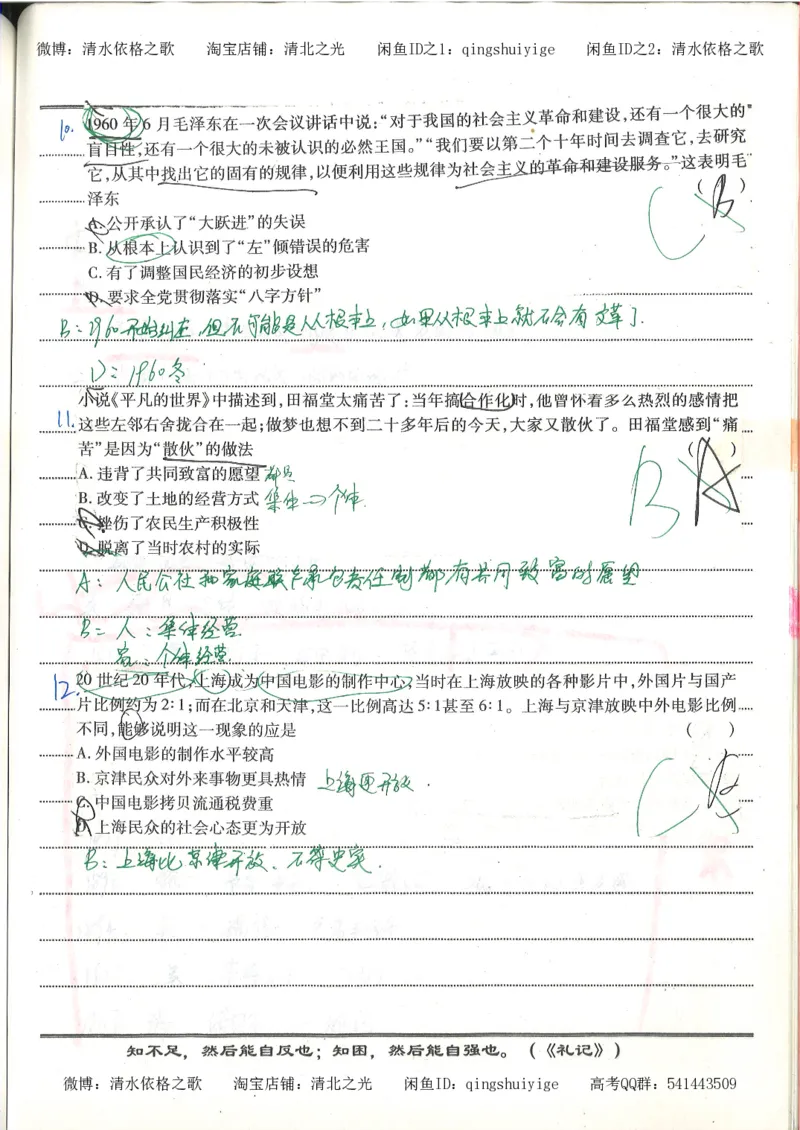 微博：清水依格之歌 淘宝店铺：清北之光 闲鱼ID之1：qingshuiyige 闲鱼ID之2：清水依格之歌
10. 1960年6月毛泽东在一次会议讲话中说：“对于我国的社会主义革命和建设，还有一个很大的
盲目性，还有一个很大的未被认识的必然王国。”“我们要以第二个十年时间去调查它，去研究
它，从其中找出它的固有的规律，以便利用这些规律为社会主义的革命和建设服务。”这表明毛
泽东 （ B ）
A. 公开承认了“大跃进”的失误 C
B. 从根本上认识到了“左”倾错误的危害
C. 有了调整国民经济的初步设想
D. 要求全党贯彻落实“八字方针”
B：1960开始纠左，但不可能是从根本上，如果从根本上就不会有文革了.
D：1960冬
小说《平凡的世界》中描述到，田福堂太痛苦了：当年搞合作化时，他曾怀着多么热烈的感情把
11. 这些左邻右舍拢合在一起；做梦也想不到二十多年后的今天，大家又散伙了。田福堂感到“痛
苦”是因为“散伙”的做法 （ A ）
A. 违背了共同致富的愿望 都是 B
B. 改变了土地的经营方式 集体→个体.
C. 挫伤了农民生产积极性
D. 脱离了当时农村的实际
A：人民公社和家庭联产承包责任制都有共同致富的愿望
B：人：集体经营.
家：个体经营.
12. 20世纪20年代，上海成为中国电影的制作中心，当时在上海放映的各种影片中，外国片与国产
片比例约为2∶1；而在北京和天津，这一比例高达5∶1甚至6∶1。上海与京津放映中外电影比例
不同，能够说明这一现象的应是 （ ）
A. 外国电影的制作水平较高
B. 京津民众对外来事物更具热情 上海更开放.
C. 中国电影拷贝流通税费重 C
D. 上海民众的社会心态更为开放
B：上海比京津开放、不符史实.
知不足，然后能自反也；知困，然后能自强也。（《礼记》）
微博：清水依格之歌 淘宝店铺：清北之光 闲鱼ID：qingshuiyige 高考QQ群：541443509